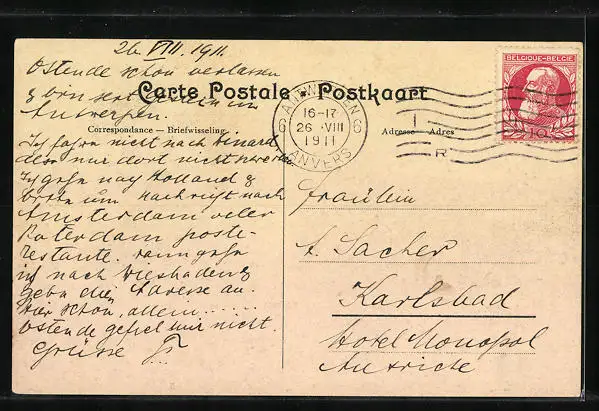 26. VIII. 1911.
Ostende schon verlassen
& bin seit gestern in
Antwerpen.
Carte Postale - Postkaart
Correspondance — Briefwisseling
Adresse — Adres
BELGIQUE·BELGIE
10
ANTWERPEN
6 6
16-17
26 VIII
1911
ANVERS
Ich fahre nicht nach Dinard
denn nur dort nicht
Ich gehe nach Holland &
bitte um Nachricht nach
Amsterdam oder
Roterdam poste-
restante. Dann gehe
ich nach Wiesbaden &
gebe die Adresse an.
Hier schön, allem ......
Ostende gefiel mir nicht.
Grüsse
Fräulein
A. Sacher
Karlsbad
Hotel Monopol
Autriche